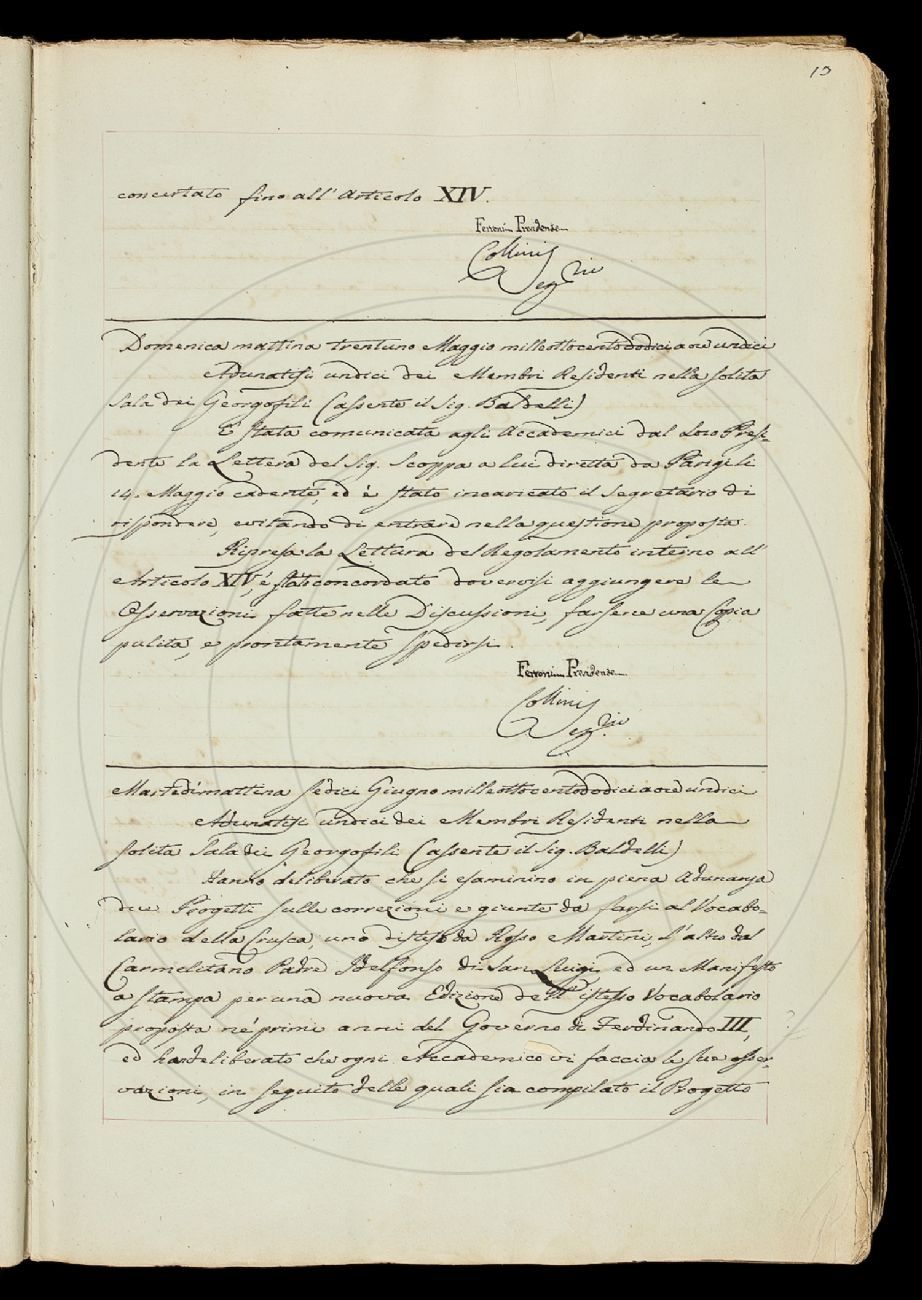 13
concertato fino all'Articolo XIV.
Ferroni Presidense
Collini
Seg.rio
Domenica mattina trentuno Maggio milleottocentododici a ore undici
Adunatisi undici dei Membri Residenti nella solita
Sala dei Georgofili (assente il Sig. Baldelli)
E' stata comunicata agli Accademici dal loro Presi-
dente la Lettera del Sig. Scoppa a lui diretta da Parigi li
14. Maggio cadente, ed è stato incaricato il Segretario di
rispondere, evitando di entrare nella questione proposta.
Ripresa la Lettura del Regolamento interno all'
Articolo XIV, è stato concordato doversi aggiungere le
Osservazioni fatte nelle Discussioni, farsene una Copia
pulita, e prontamente spedirsi.
Ferroni Presidense
Collini
Seg.rio
Martedì mattina sedici Giugno milleottocentododici a ore undici
Adunatisi undici dei Membri Residenti nella
solita Sala dei Georgofili (assente il Sig. Baldelli)
Hanno deliberato che si esaminino in piena Adunanza
due Progetti sulle correzioni e giunte da farsi al Vocabo-
lario della Crusca, uno disteso da Rosso Martini, l'altro dal
Carmelitano Padre Idelfonso di San Luigi, ed un Manifesto
a stampa per una nuova Edizione dell' istesso Vocabolario
proposta ne' primi anni del Governo di Ferdinando III,
ed han deliberato che ogni Accademico vi faccia le sue osser-
vazioni, in seguito delle quali sia compilato il Progetto